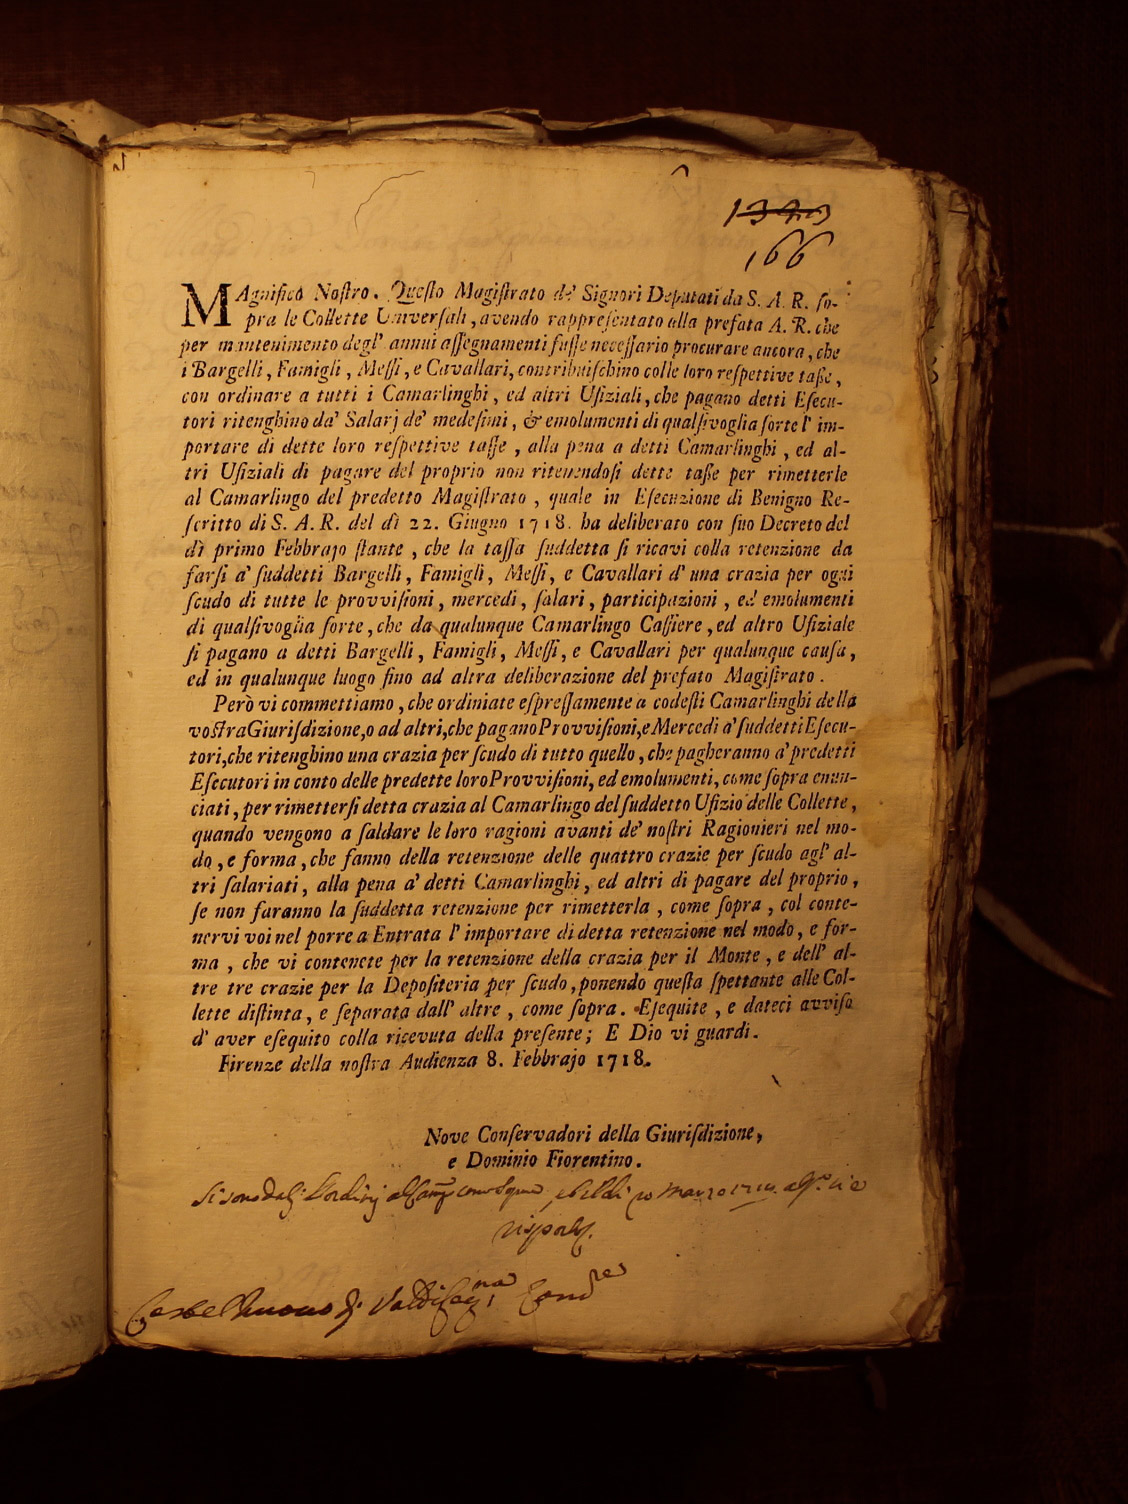 1323
166
MAgnifico Noſtro. Queſto Magiſtrato de' Signori Deputati da S. A. R. ſo-
pra le Collette Univerſali, avendo rappreſentato alla prefata A. R. che
per mantenimento degl' annui aſſegnamenti fuſſe neceſſario procurare ancora, che
i Bargelli, Famigli, Meſſi, e Cavallari, contribuiſchino colle loro reſpettive taſſe,
con ordinare a tutti i Camarlinghi, ed altri Ufiziali, che pagano detti Eſecu-
tori ritenghino da' Salarj de' medeſimi, & emolumenti di qualſivoglia ſorte l' im-
portare di dette loro reſpettive taſſe, alla pena a detti Camarlinghi, ed al-
tri Ufiziali di pagare del proprio non ritenendoſi dette taſſe per rimetterle
al Camarlingo del predetto Magiſtrato, quale in Eſecuzione di Benigno Re-
ſcritto di S. A. R. del dì 22. Giugno 1718. ha deliberato con ſuo Decreto del
dì primo Febbrajo ſtante, che la taſſa ſuddetta ſi ricavi colla retenzione da
farſi a' ſuddetti Bargelli, Famigli, Meſſi, e Cavallari d' una crazia per ogni
ſcudo di tutte le provviſioni, mercedi, ſalari, participazioni, ed emolumenti
di qualſivoglia ſorte, che da qualunque Camarlingo Caſſiere, ed altro Ufiziale
ſi pagano a detti Bargelli, Famigli, Meſſi, e Cavallari per qualunque cauſa,
ed in qualunque luogo fino ad altra deliberazione del prefato Magiſtrato.
Però vi commettiamo, che ordiniate eſpreſſamente a codeſti Camarlinghi della
voſtra Giuriſdizione, o ad altri, che pagano Provviſioni, e Mercedi a' ſuddetti Eſecu-
tori, che ritenghino una crazia per ſcudo di tutto quello, che pagheranno a' predetti
Eſecutori in conto delle predette loro Provviſioni, ed emolumenti, come ſopra enun-
ciati, per rimetterſi detta crazia al Camarlingo del ſuddetto Ufizio delle Collette,
quando vengono a ſaldare le loro ragioni avanti de' noſtri Ragionieri nel mo-
do, e forma, che fanno della retenzione delle quattro crazie per ſcudo agl' al-
tri ſalariati, alla pena a' detti Camarlinghi, ed altri di pagare del proprio,
ſe non faranno la ſuddetta retenzione per rimetterla, come ſopra, col conte-
nervi voi nel porre a Entrata l' importare di detta retenzione nel modo, e for-
ma, che vi contenete per la retenzione della crazia per il Monte, e dell' al-
tre tre crazie per la Depoſiteria per ſcudo, ponendo queſta ſpettante alle Col-
lette diſtinta, e ſeparata dall' altre, come ſopra. Eſequite, e dateci avviſo
d' aver eſequito colla ricevuta della preſente; E Dio vi guardi.
Firenze della noſtra Audienza 8. Febbrajo 1718.
Nove Conſervadori della Giuriſdizione,
e Dominio Fiorentino.
Si sono ordini come Sopra
Castelnuovo di Valdicecina